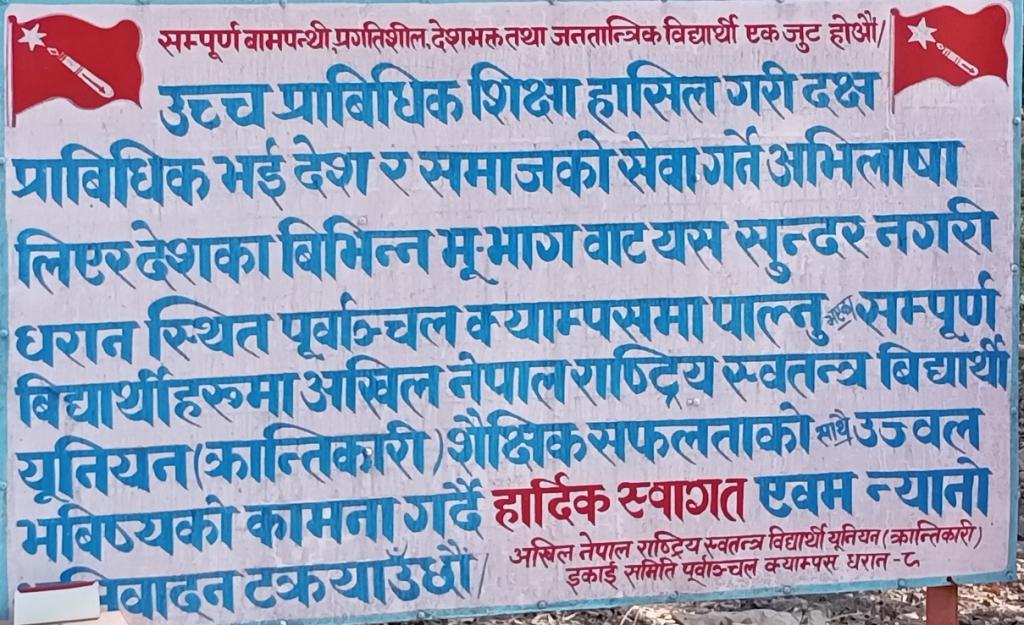 सम्पूर्ण बामपन्थी,प्रगतिशील,देशभक्त तथा जनतान्त्रिक विद्यार्थी एक जुट होऔं/
उच्च प्राबिधिक शिक्षा हासिल गरी दक्ष
प्राबिधिक भई देश र समाजको सेवा गर्ने अभिलाषा
लिएर देशका बिभिन्न भू-भाग वाट यस सुन्दर नगरी
धरान स्थित पूर्वाञ्चल क्याम्पसमा पाल्नु भएका सम्पूर्ण
बिद्यार्थीहरुमा अखिल नेपाल राष्ट्रिय स्वतन्त्र बिद्यार्थी
यूनियन (क्रान्तिकारी) शैक्षिक सफलताको साथै उज्वल
भबिष्यको कामना गर्दै हार्दिक स्वागत एवम न्यानो
वादन टक्रयाउँछौं/
अखिल नेपाल राष्ट्रिय स्वतन्त्र विद्यार्थी यूनियन (क्रान्तिकारी)
इकाई समिति पूर्वाञ्चल क्याम्पस धरान-८